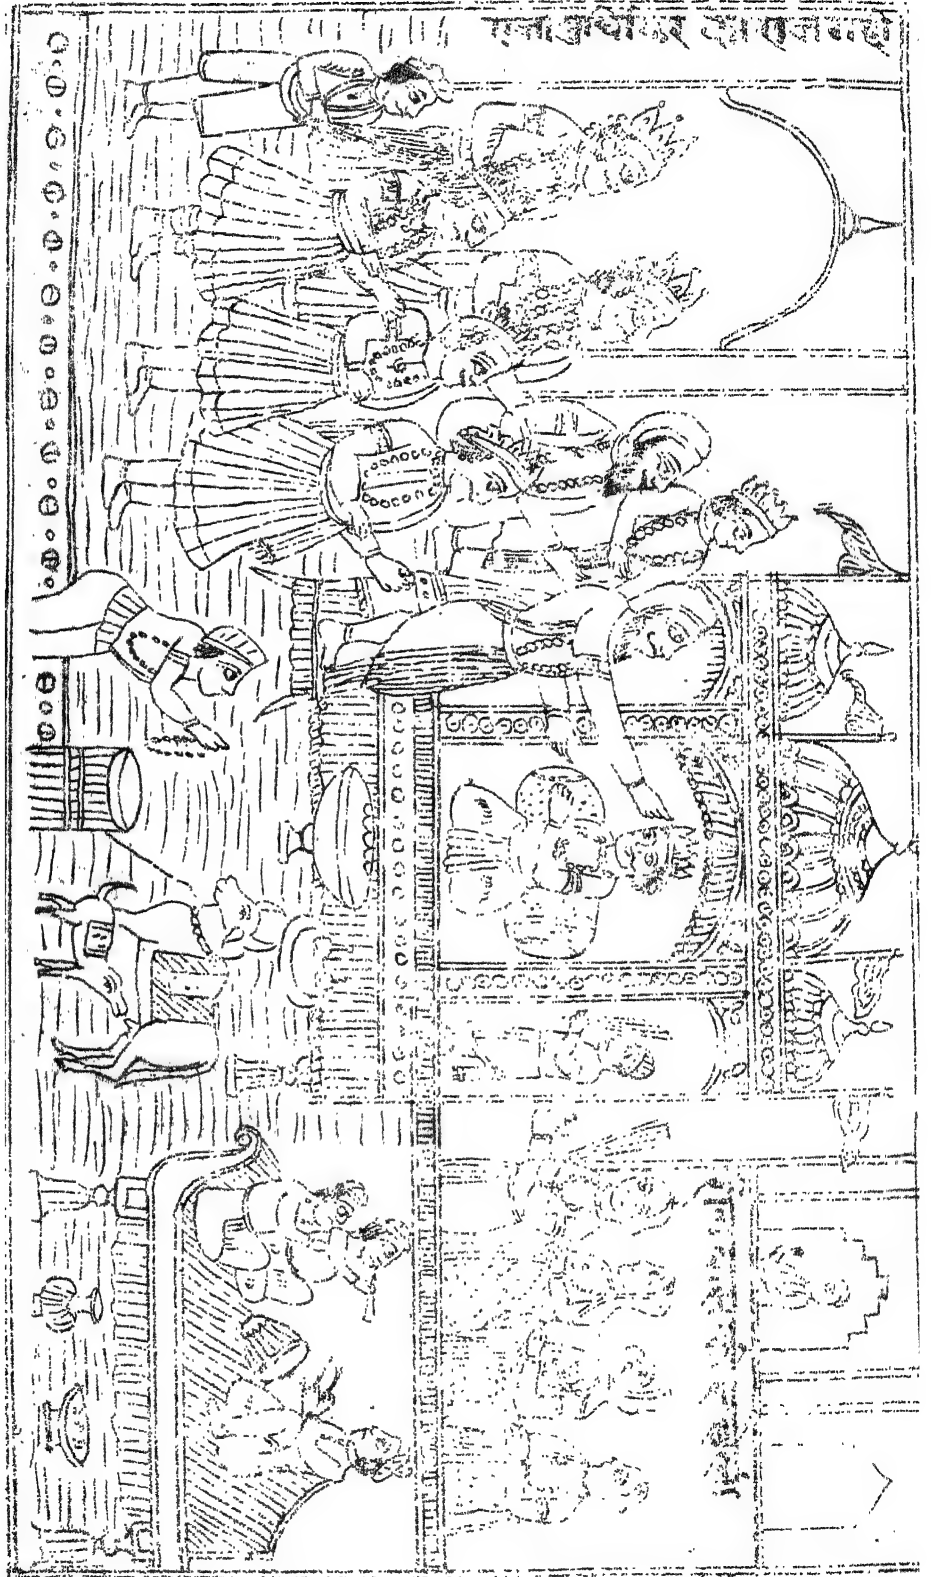 राजा युधिष्ठिर की राजगद्दी